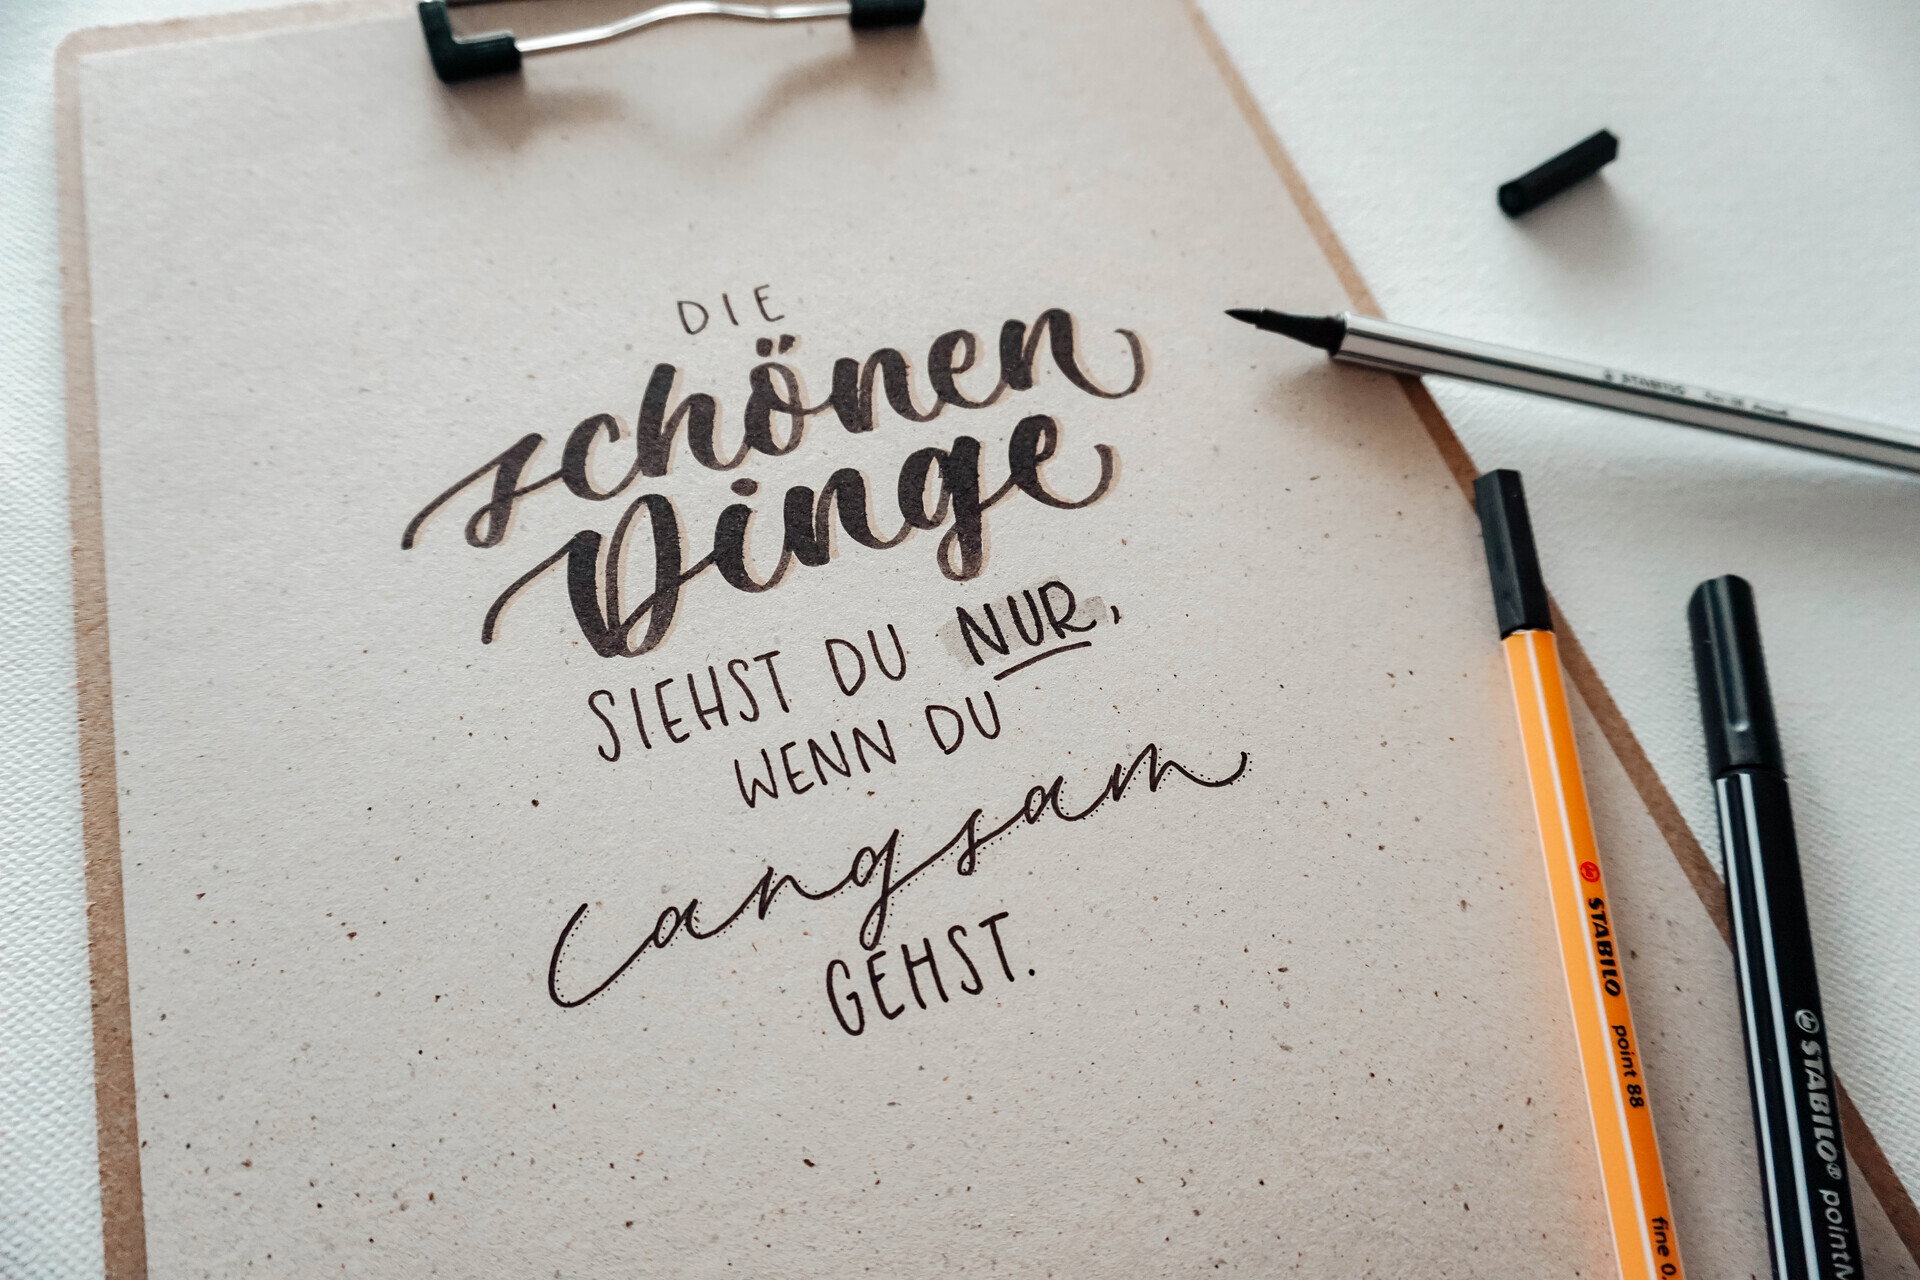 DIE
schönen
Dinge
SIEHST DU NUR,
WENN DU
langsam
GEHST.
STABILO
STABILO point 88 fine 0.
STABILO® point